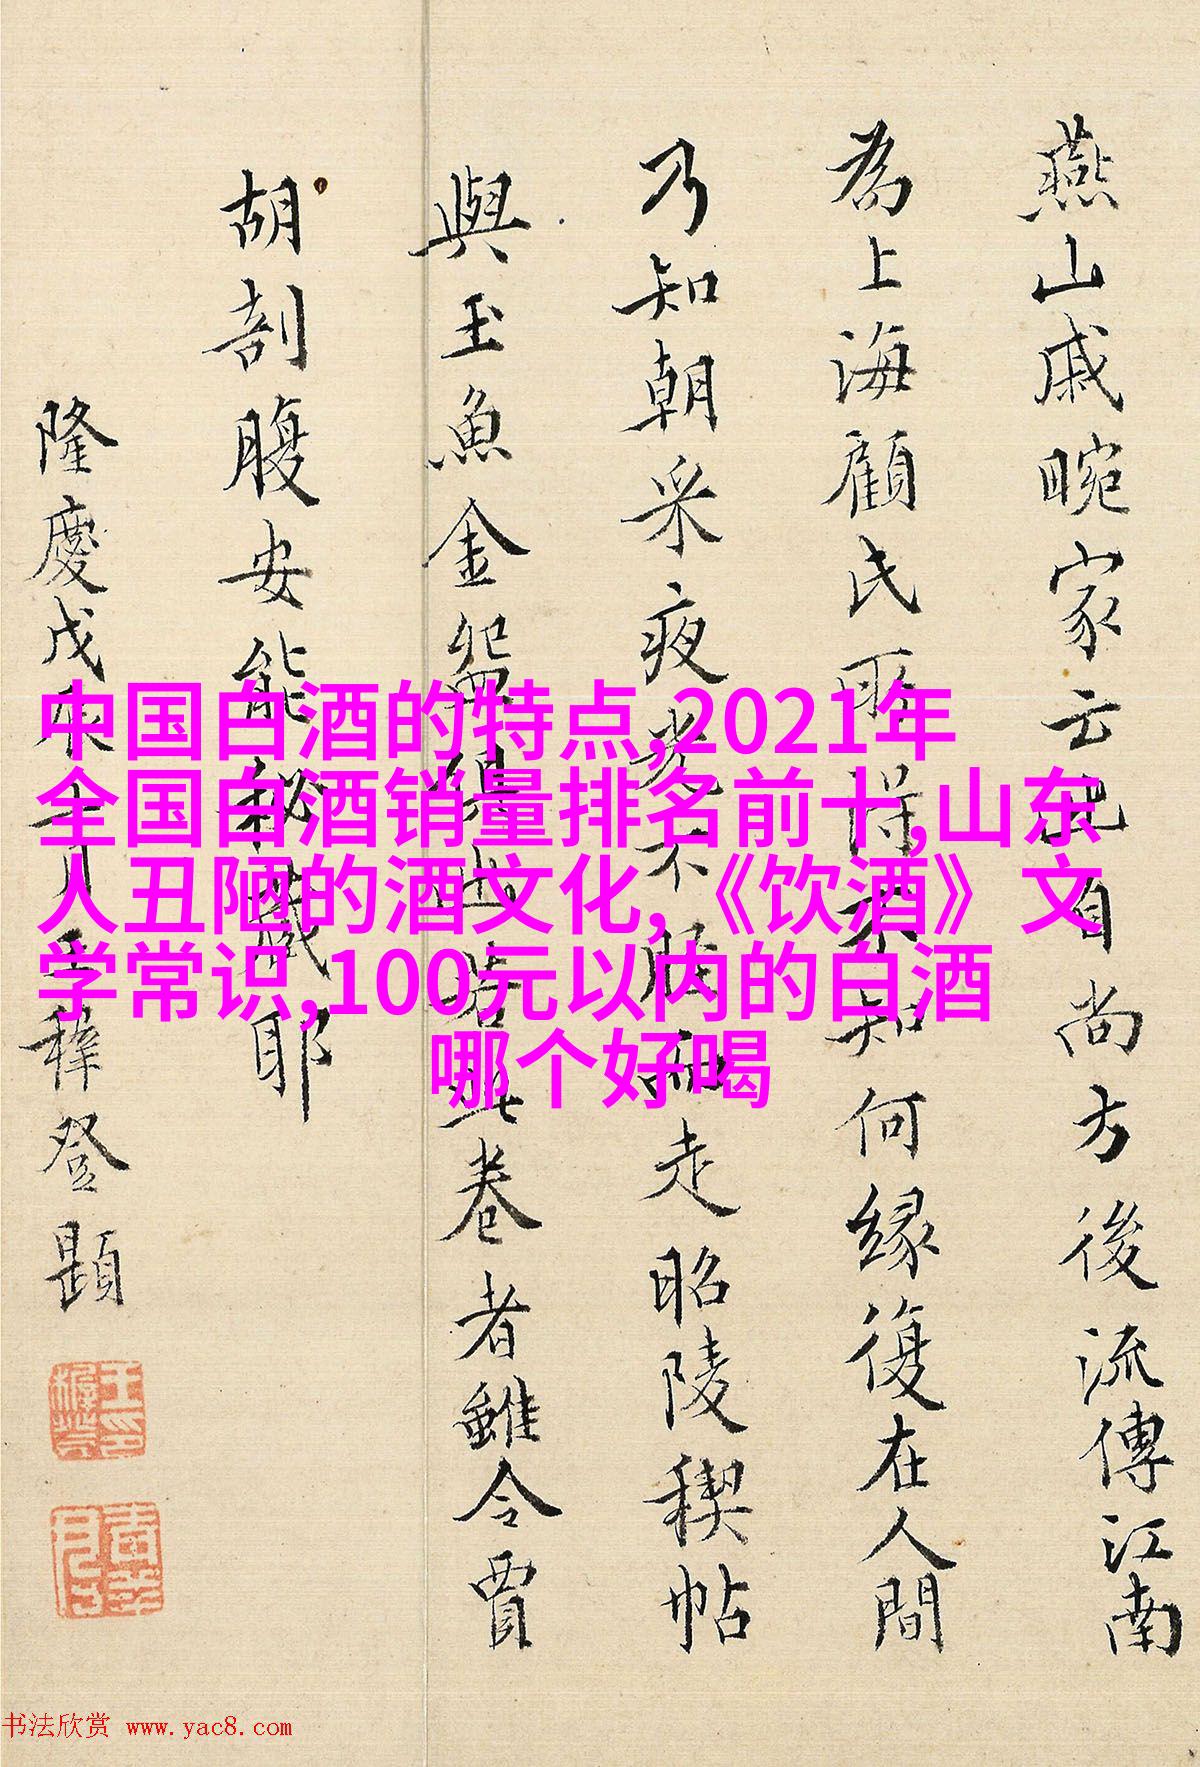 燕山戚畹家云自尚方後流傳江南
為上海顧氏所得不知何緣復在人間
乃知朝采夜光不脛而走昭陵稧帖
與玉魚金盌俱出若此卷者雖令賈
胡剖腹安能秘藏耶
隆慶戊辰月王穉登題
中国白酒的特点,2021年
全国白酒销量排名前十,山东
人丑陋的酒文化,《饮酒》文
学常识,100元以内的白酒
哪个好喝
书法欣赏 www.yac8.com